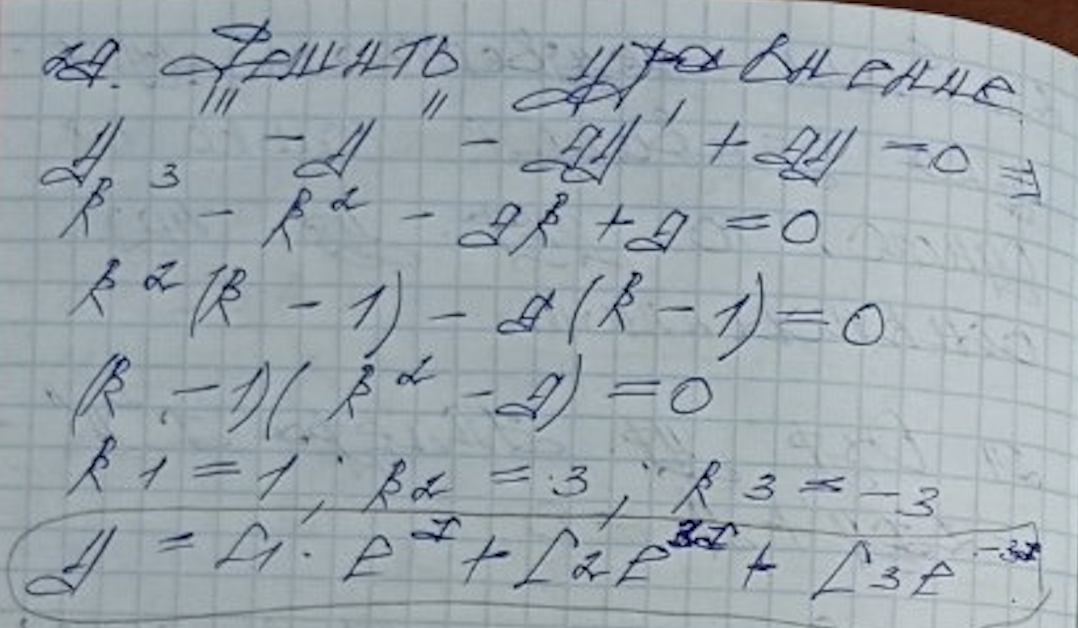 29. Решить уравнение
y''' - y'' - 9y' + 9y = 0 ⇒
k³ - k² - 9k + 9 = 0
k² (k - 1) - 9 (k - 1) = 0
(k - 1) (k² - 9) = 0
k1 = 1; k2 = 3; k3 = -3
y = C1 · e^x + C2 e^3x + C3 e^-3x